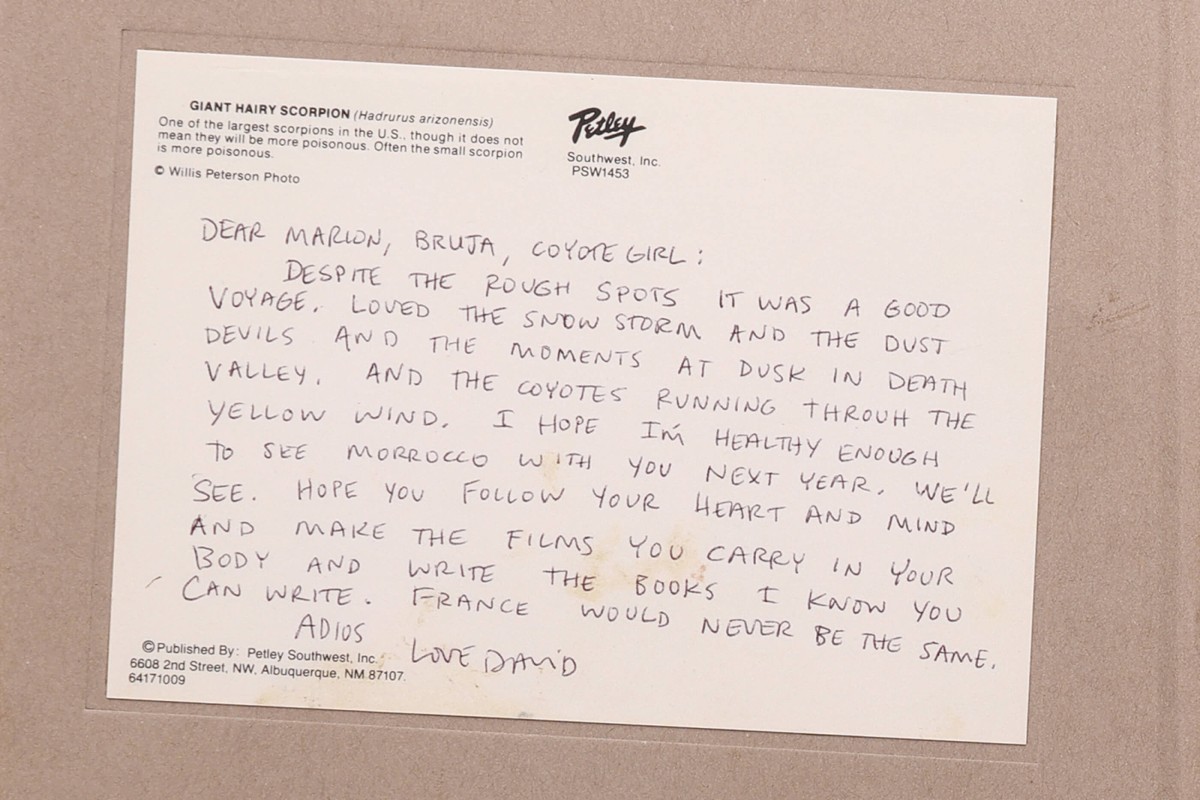 GIANT HAIRY SCORPION (Hadrurus arizonensis)
One of the largest scorpions in the U.S., though it does not
mean they will be more poisonous. Often the small scorpion
is more poisonous.
© Willis Peterson Photo
Petley
Southwest, Inc.
PSW1453
DEAR MARION, BRUJA, COYOTE GIRL:
DESPITE THE ROUGH SPOTS IT WAS A GOOD
VOYAGE. LOVED THE SNOW STORM AND THE DUST
DEVILS AND THE MOMENTS AT DUSK IN DEATH
VALLEY. AND THE COYOTES RUNNING THROUH THE
YELLOW WIND. I HOPE I'M HEALTHY ENOUGH
TO SEE MORROCCO WITH YOU NEXT YEAR. WE'LL
SEE. HOPE YOU FOLLOW YOUR HEART AND MIND
AND MAKE THE FILMS YOU CARRY IN YOUR
BODY AND WRITE THE BOOKS I KNOW YOU
CAN WRITE. FRANCE WOULD NEVER BE THE SAME.
ADIOS
LOVE DAVID
© Published By: Petley Southwest, Inc.
6608 2nd Street, NW, Albuquerque, NM 87107.
64171009